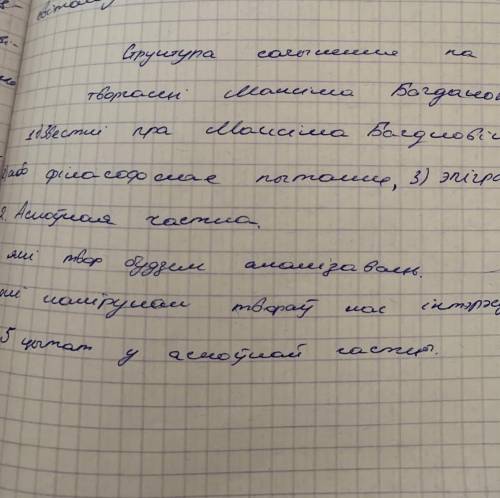 Структура сачынення па
творчасці Максіма Багданов
звесткі пра Максіма Багдновіч
або філасофскае пытанне, 3) эпігра
2. Асноўная частка.
які твор будзем аналізаваць.
кірункам твораў нас
5 цытат у асноўнай частцы.